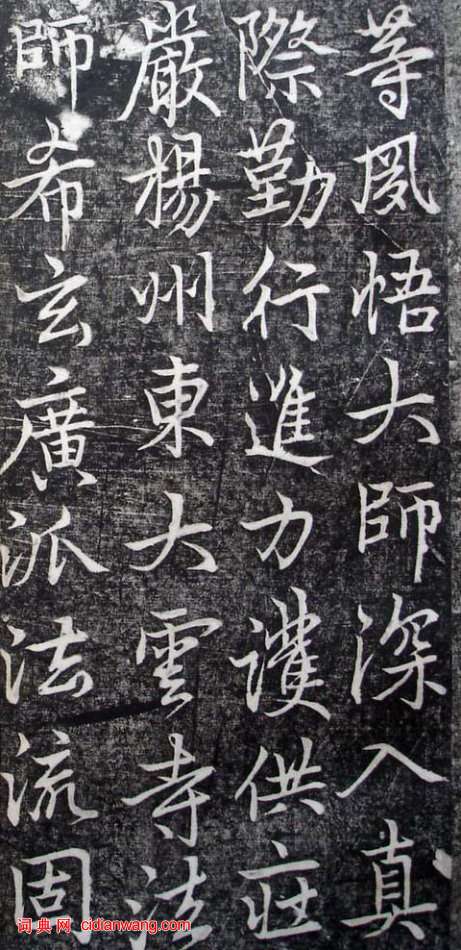 等夙悟大師深入真
際勤行進力護供莊
嚴楊州東大雲寺法
師希玄廣派法流固
词典网 cidianwang.com